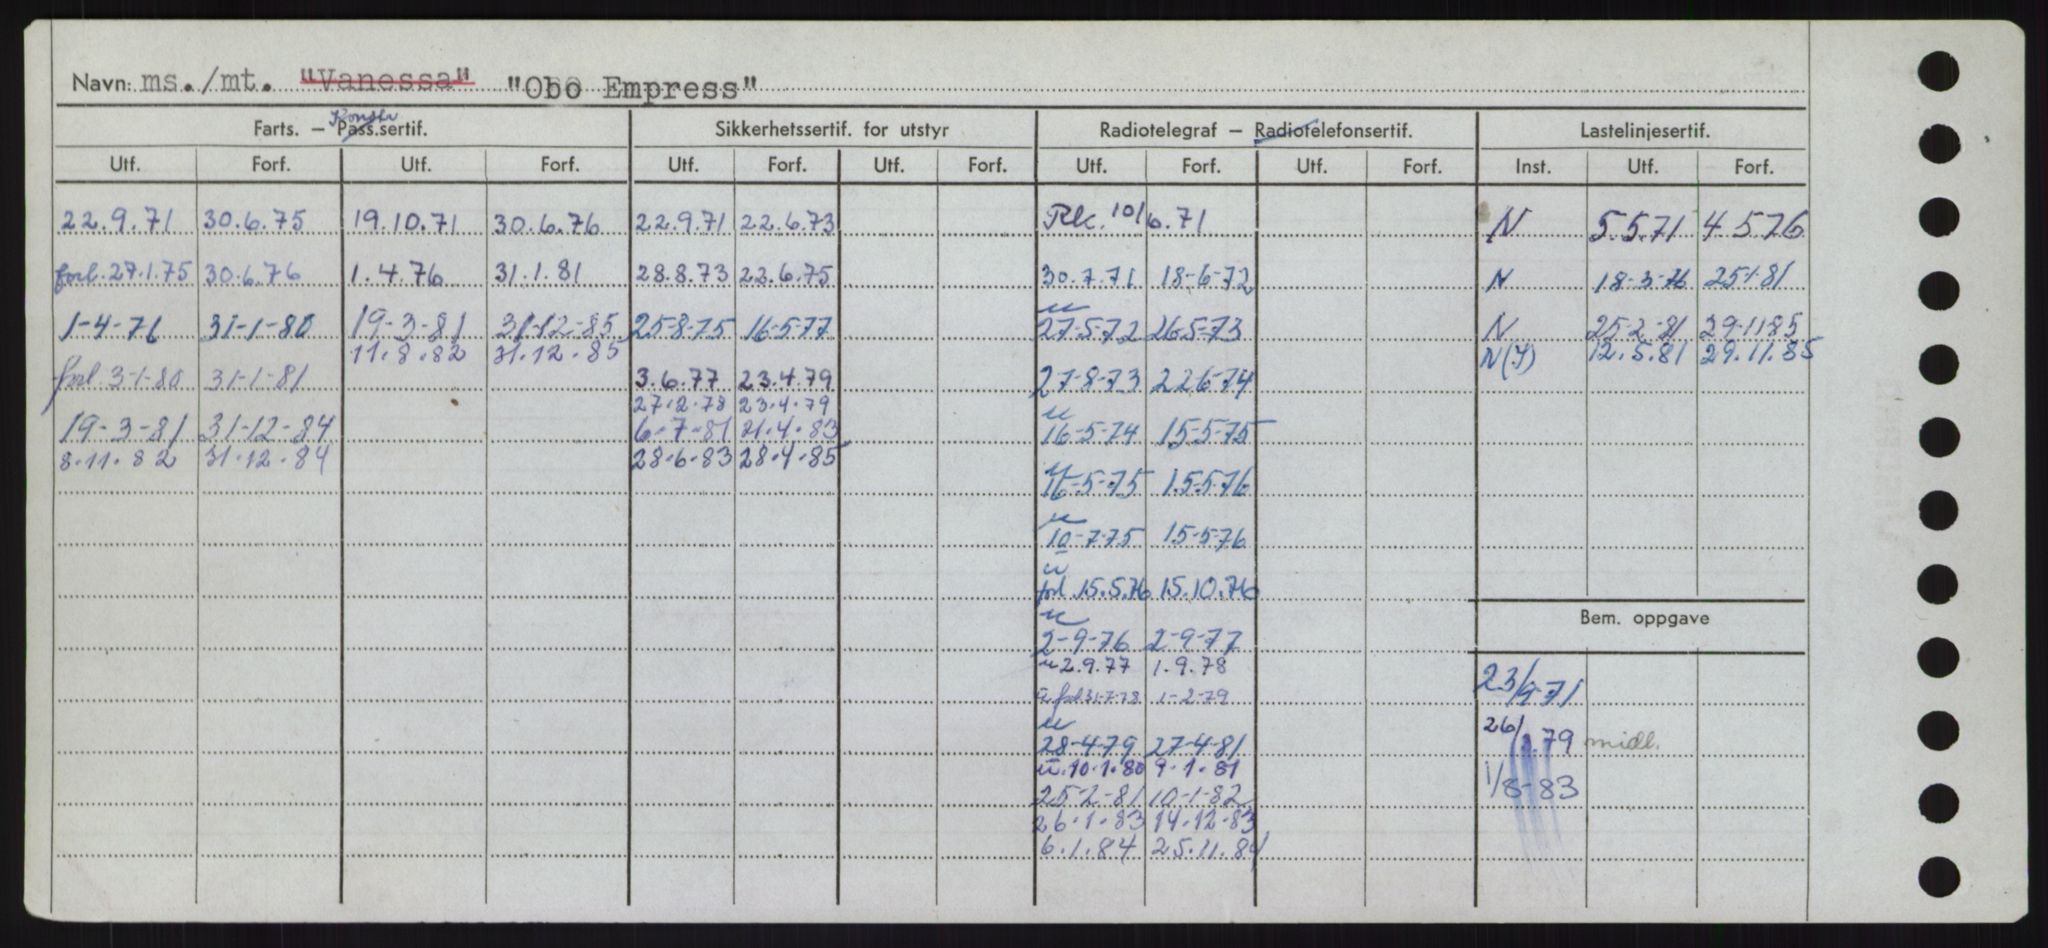 Navn: ms./mt. "Vanessa" "Obo Empress"
Farts. – Pass.sertif. Konstr Sikkerhetssertif. for utstyr Radiotelegraf – Radiotelefonsertif. Lastelinjesertif.
Utf. Forf. Utf. Forf. Utf. Forf. Utf. Forf. Utf. Forf. Utf. Forf. Inst. Utf. Forf.
22.9.71 30.6.75 19.10.71 30.6.76 22.9.71 22.6.73 10/6.71 N 5.5.71 4.5.76
forl.27.1.75 30.6.76 1.4.76 31.1.81 28.8.73 22.6.75 30.7.71 18-6-72 N 18-3-76 25-1-81
1-4-76 31-1-80 19-3-81 31-12-85 25-8-75 16-5-77 27-5-72 26-5-73 N 25-2-81 29-11-85
11.8.82 31.12.85 N(I) 12.5.81 29.11.85
forl 3-1-80 31-1-81 3.6.77 23.4.79 27-8-73 22-6-74
27.2.78 23.4.79
19-3-81 31-12-84 6.7.81 21.4.83 16-5-74 15-5-75
8.11.82 31.12.84 28.6.83 28.4.85
16-5-75 15-5-76
10-7-75 15-5-76
forl.15.5.76 15.10.76
Bem. oppgave
2-9-76 2-9-77
2.9.77 1.9.78
23/9-71
forl 31-7-78 1-2-79
28-4-79 27-4-81 26/3.79 midl.
10.1.80 9.1.81
25-2-81 10-1-82 1/8-83
26.1.83 14.12.83
6.1.84 25.11.84